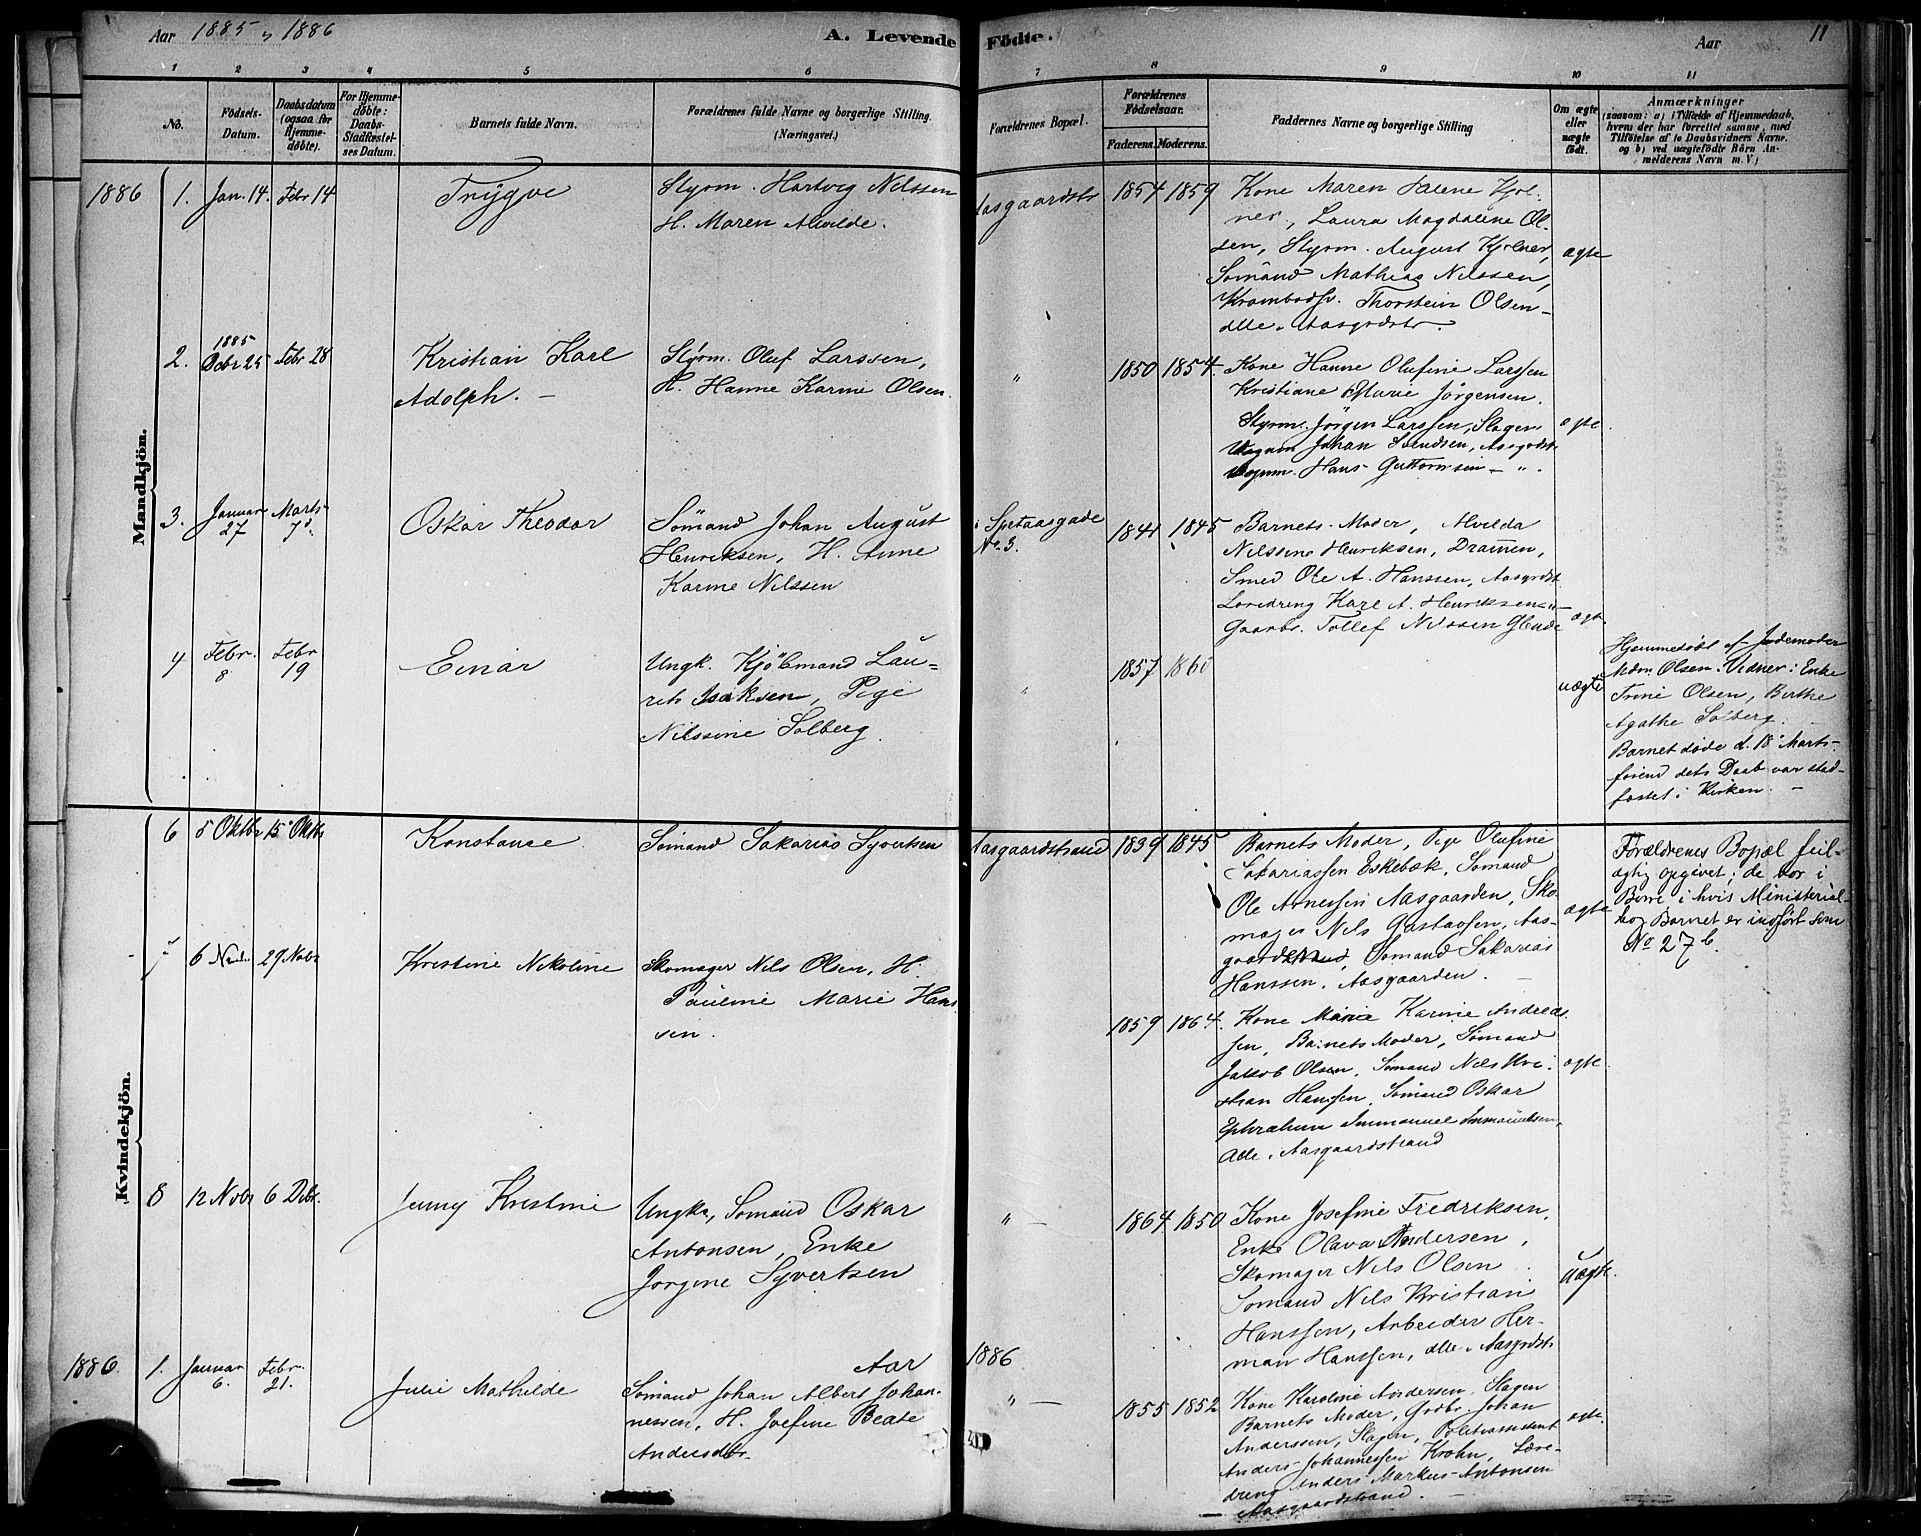 Aar 1885 & 1886
A. Levende Födte.
Aar
11
1 2 3 4 5 6 7 8 9 10 11
No.
Födsels-Datum.
Daabsdatum (ogsaa for Hjemme-döbte).
For Hjemme-döbte: Daabs-Stadfæstel-ses Datum.
Barnets fulde Navn.
Forældrenes fulde Navne og borgerlige Stilling. (Næringsvei.)
Forældrenes Bopæl.
Forældrenes Födselsaar.
Faderens. Moderens.
Faddernes Navne og borgerlige Stilling
Om ægte eller uægte födt.
Anmærkninger
(saasom: a) i Tilfælde af Hjemmedaab,
hvem der har forrettet samme, med
Tilföielse af to Daabsvidners Navne.
og b) ved uægtefödte Börn An-
melderens Navn m. V.)
Mandkjön.
1886 1. Jan. 14. Febr 14
Trygve
Styrm. Hartvig Nilssen
H. Maren Alvilde.
Aasgaardstr
1854 1859
Kone Maren Helene Kjøl-
ner, Laura Magdalene Ol-
sen, Styrm. August Kjølner,
Sømand Mathias Nilssen,
Thorstein Olsen
alle Aasgrdstr.
ægte
2. 1885 Decbr 25 Febr 28
Kristian Karl
Adolph. –
Styrm. Oluf Larssen,
H. Hanne Karine Olsen.
"
1850 1854
Kone Hanne Olufine Larssen
Kristiane Marie Jørgensen.
Styrm. Jörgen Larssen, Slagen
Johan Svendsen, Aasgrdst.
Hans Guttormsen – " .
ægte
3. Januar 27 Marts 7.
Oskar Theodor
Sömand Johan August
Henriksen, H. Anne
Karine Nilssen
Spetaasgade
No. 3.
1841 1845
Barnets Moder, Alvilda
Nilssine Henriksen, Dramen,
Smed Ole A. Hanssen, Aasgrdst.
Løredreng Karl A. Henriksen –"–
Gaarbr. Tollef Nilssen
ægte
4 Febr. 8 Febr 19
Einar
Ungk. Kjöbmand Lau-
rits Isaksen, Pige
Nilssine Solberg.
"
1857 1860
uægte
Hjemmedøbt af Jordemoder
Mdm. Olsen. Vidner: Enke
Trine Olsen, Berthe
Agathe Solberg.
Barnet døde d. 18. Marts
førend dets Daab var stad-
fæstet i Kirken. –
Kvindekjön.
6 5 Oktbr 15 Oktbr
Konstanse
Sømand Sakarias Syvertsen
Aasgaardstrand
1839 1845
Barnets Moder, Pige Olufine
Sakariassen Eskebæk, Sømand
Ole Arnessen Aasgaarden, Sko-
mager Nils Gustavsen, Aas-
gaardstrand, Sømand Sakarias
Hanssen, Aasgaarden. –
ægte
Forældrenes Bopæl feil-
agtig opgivet; de bor i
Borre i hvis Ministerial-
bog Barnet er indført som
No 27 b.
7 6 Novbr 29 Novbr
Kristine Nikoline
Skomager Nils Olsen, H.
Pauline Marie Hans
sen.
1859 1864
Kone Marie Karine Andreas
sen, Barnets Moder, Sømand
Jakob Olsen, Sømand Nils Kri-
stian Hanssen, Sømand Oskar
Ephraim Immanuel Immanuelsen,
Alle, Aasgaardstrand
ægte
8 12 Novbr 6 Decbr.
Jenny Kristine
Ungka, Sømand Oskar
Antonsen, Enke
Jørgine Syvertsen
" –
1864 1850
Kone Josefine Fredriksen,
Enke Olava Andersen,
Skomager Nils Olsen
Sømand Nils Kristian
Hanssen, Arbeider Her-
man Hanssen, alle Aasgrdstr.
uægte
Aar 1886
1886. 1. Januar 6. Febr. 21.
Julie Mathilde
Sømand Johan Albert Johan-
nessen, H. Josefine Beate
Andersdtr.
" –
1855 1852
Kone Karoline Andersen, Slagen
Barnets Moder, Grdbr. Johan
Anderssen, Slagen, Politiassistent
Anders Johannessen Krohn, Lære-
dreng Anders Markus Antonsen
Aasgaardstrand. –
ægte.